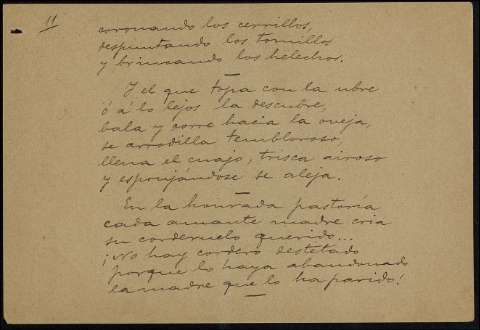 11
coronando los cerrillos,
despuntando los tomillos
y brincando los helechos.
Y el que topa con la ubre
ó á lo lejos la descubre,
bala y corre hacia la oveja,
se arrodilla tembloroso,
llena el cuajo, trisca airoso
y esponjándose se aleja.
En la honrada pastoría
cada amante madre cria
su corderuelo querido...
¡No hay cordero destetado
porque lo haya abandonado
la madre que lo ha parido!